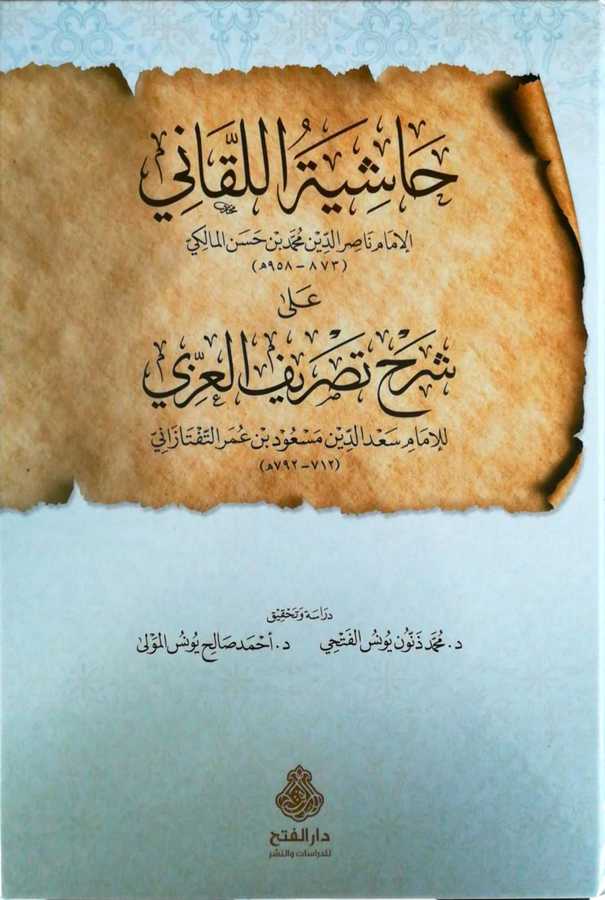 حَاشِيَةُ اللَّقَانِي
الإمام نَاصِر الدِّين مُحَمَّد بْن حَسَن المَالِكِيّ
(٨٧٣ - ٩٥٨هـ)
عَلَى
شَرْح تَصْرِيف العِزِّي
لِلإمَام سَعْد الدِّين مَسْعُود بن عُمَر التَّفْتَازَانِيّ
(٧١٢ - ٧٩٢هـ)
دِرَاسَة وَتَحْقِيق
د. مُحَمَّد ذَنُّون يُونُس الفَتْحِي د. أَحْمَد صَالِح يُونُس المَوْلَى
دار الفتح
للدراسات والنشر